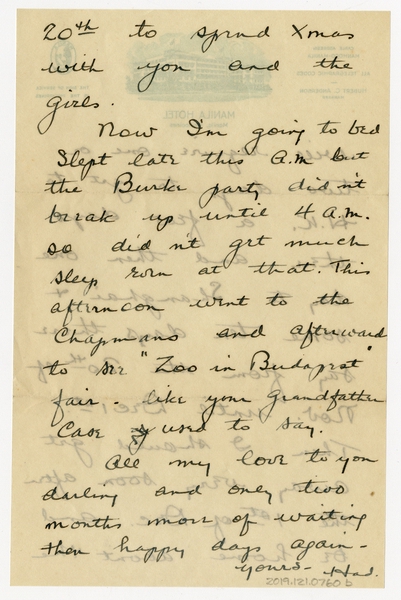 20th to spend Xmas
with you and the
girls.
Now I'm going to bed
Slept late this A.M but
the Burke party didn't
break up until 4 A.M.
so didn't get much
sleep even at that. This
afternoon went to the
Chapmans and afterward
to see "Zoo in Budapest"
fair - like your Grandfather
Case used to say.
All my love to you
darling and only two
months more of waiting
then happy days again -
yours - Hal.
2019.121.0760 b
MANILA HOTEL